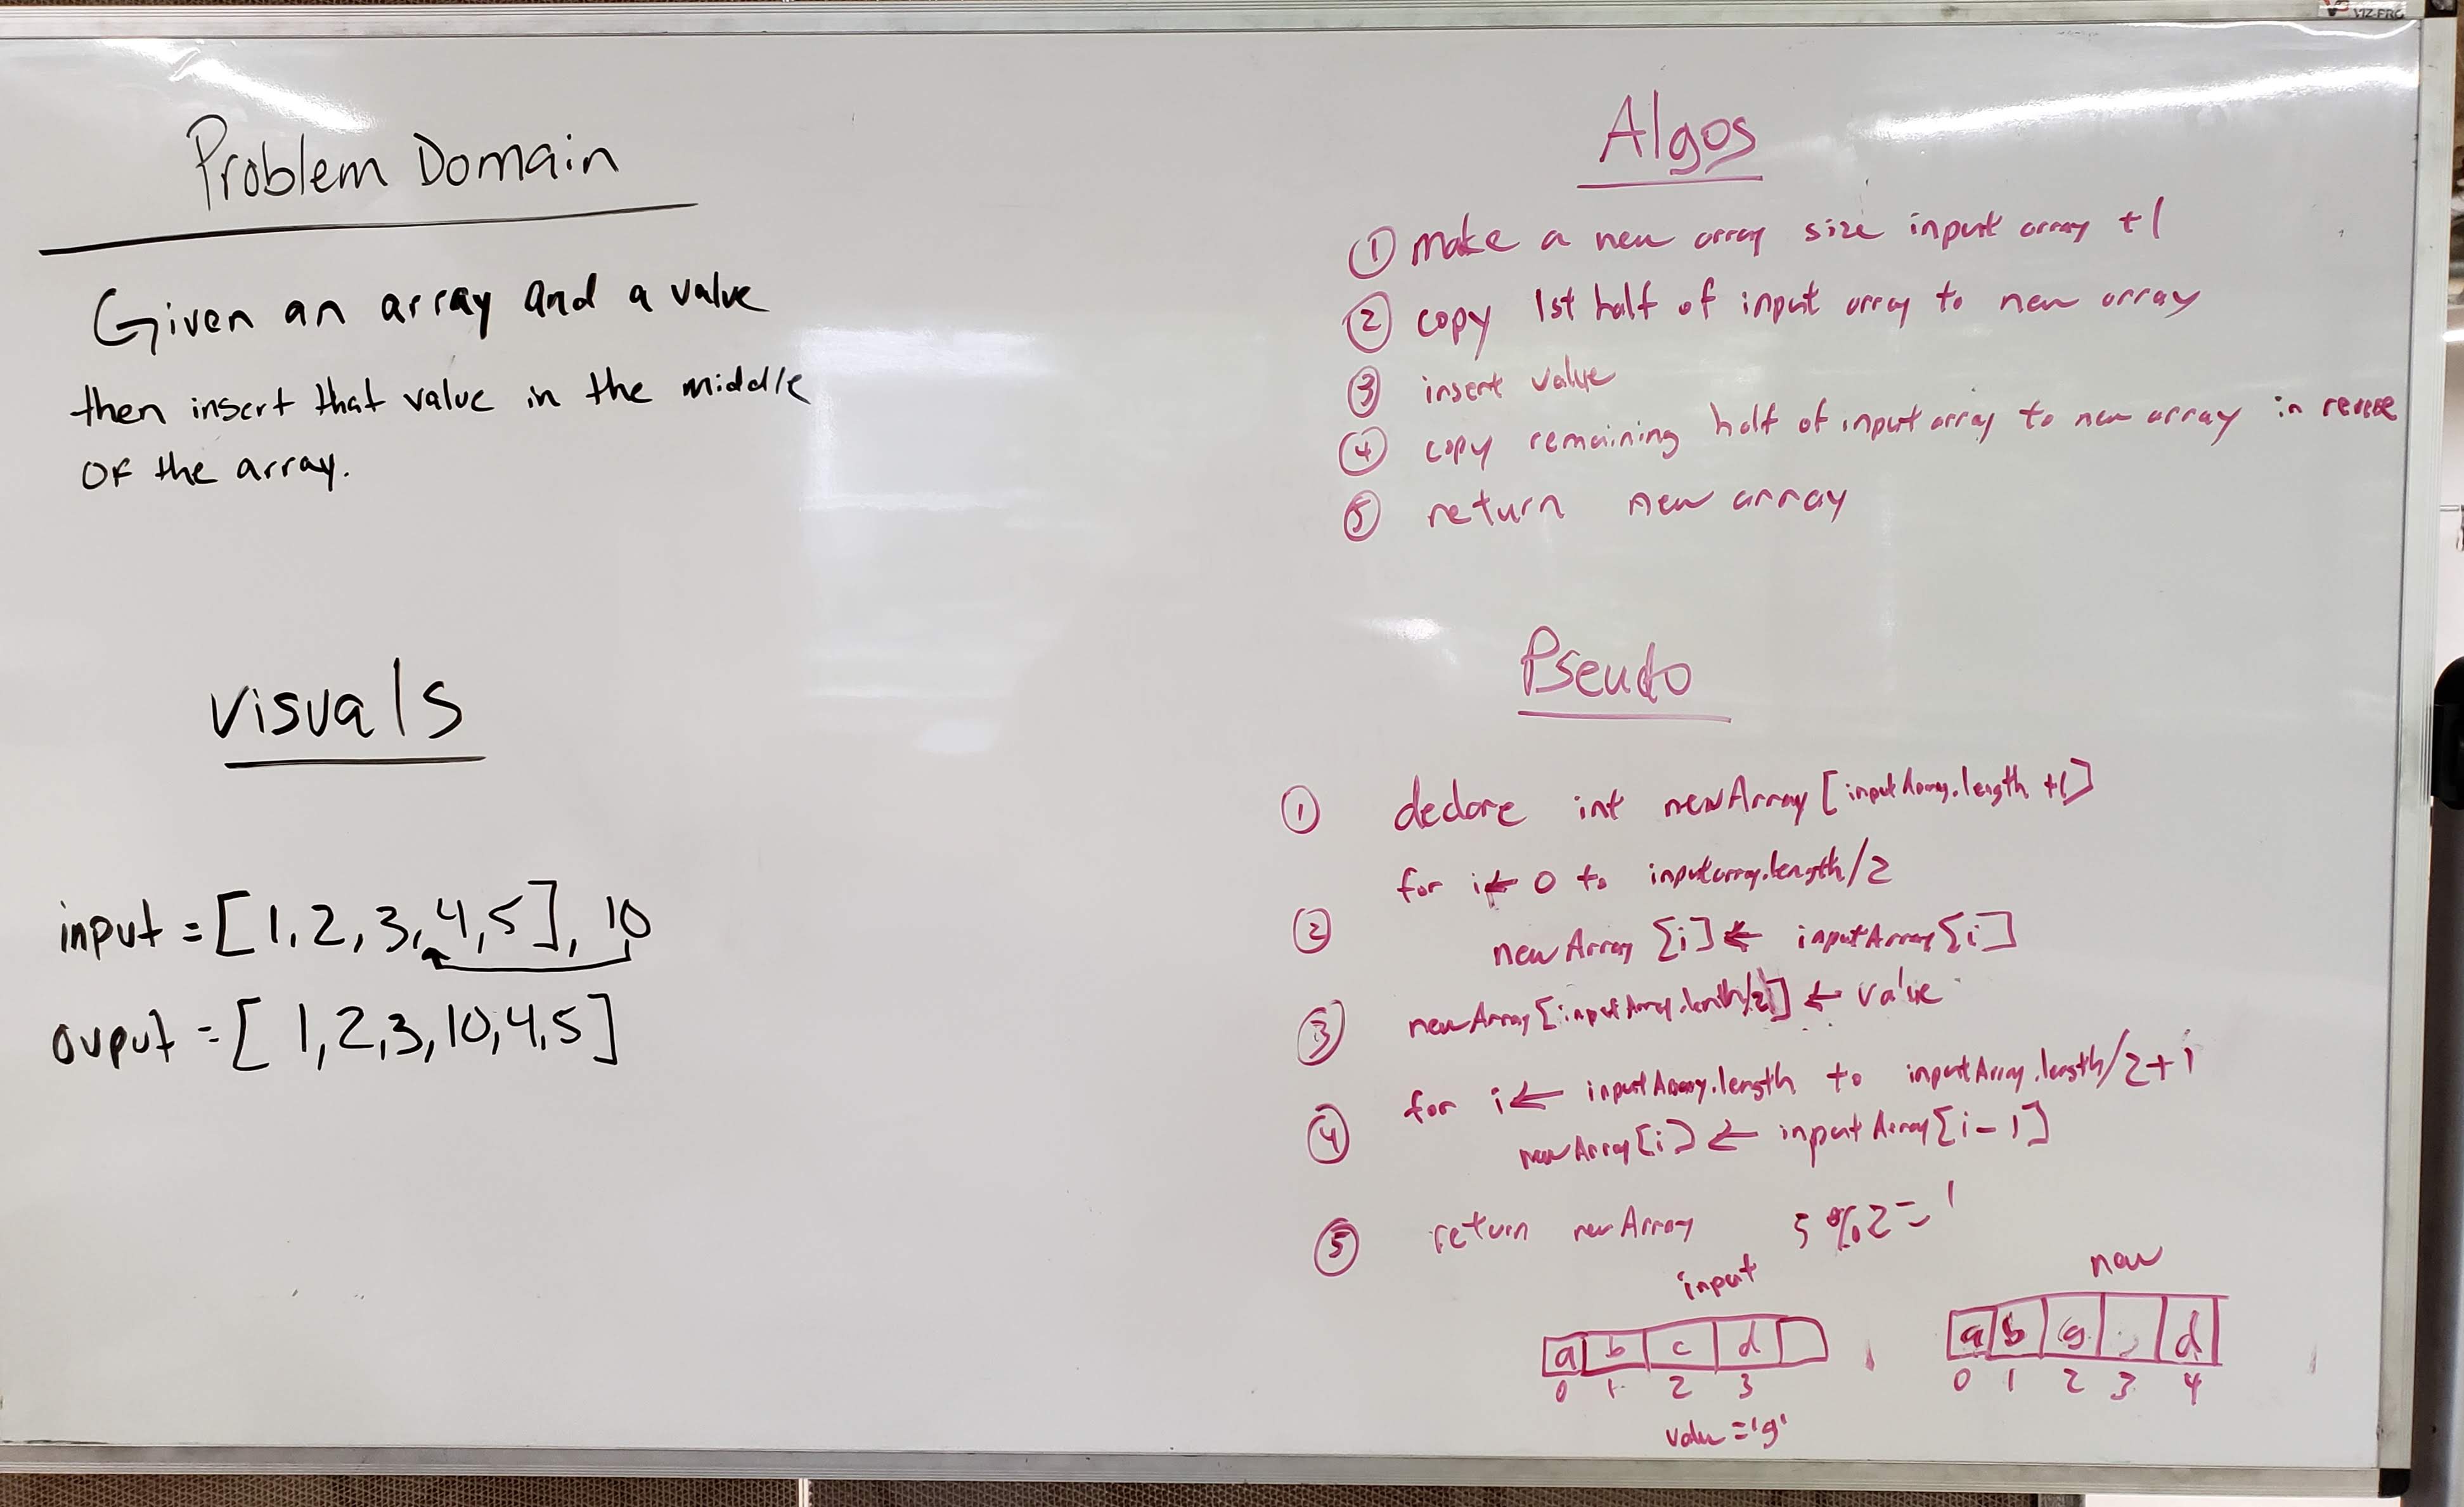 Problem Domain
Given an array and a value
then insert that value in the middle
of the array.
visuals
input = [1,2,3,4,5], 10
ouput = [1,2,3,10,4,5]
Algos
① make a new array size input array +1
② copy 1st half of input array to new array
③ insert value
④ copy remaining half of input array to new array in reverse
⑤ return new array
Pseudo
① declare int newArray[inputArray.length +1]
for i ← 0 to inputarray.length/2
② newArray[i] ← inputArray[i]
③ newArray[inputArray.lenth/2] ← value
for i ← inputArray.length to inputArray.length/2+1
④ newArray[i] ← inputArray[i-1]
⑤ return newArray 5%2=1
input
a b c d
0 1 2 3
value='g'
new
a b g d
0 1 2 3 4